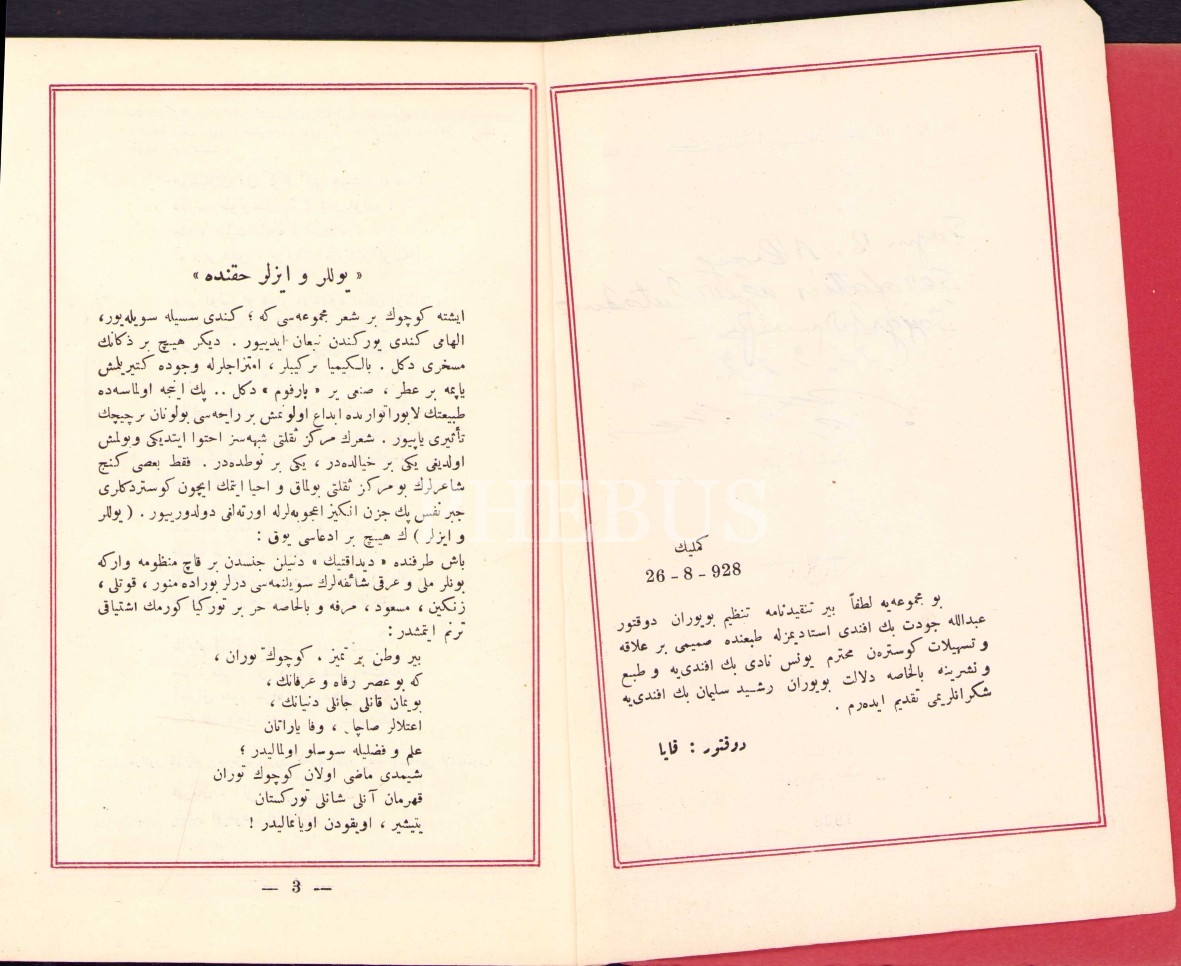 كمليك
26 - 8 - 928
بو مجموعه‌يه لطفاً بير تنقيدنامه تنظيم بويوران دوقتور
عبدالله جودت بك افندى استاديمزله طبعنده صميمى بر علاقه
و تسهيلات كوسترەن محترم يونس نادى بك افندى‌يه و طبع
و نشرينه بالخاصه دلالت بويوران رشيد سليمان بك افندى‌يه
شكرانلريمى تقديم ايدەرم .
دوقتور : قايا
« يوللر و ايزلر حقنده »
ايشته كوچوك بر شعر مجموعه‌سى كه ؛ كندى سسيله سويله‌يور،
الهامى كندى يوركندن نبعان ايدييور . ديكر هيچ بر ذكانك
مسخرى دكل . بالكيميا تركيبلر ، امتزاجلرله وجوده كتيريلمش
ياپمه بر عطر ، صنعى بر « پارفوم » دكل .. پك اينجه اولماسه‌ده
طبيعتك لابوراتوارنده ابداع اولونمش بر رايحه‌سى بولونان بر چيچك
تأثيرى ياپيور . شعرك مركز ثقلتى شبهه‌سز احتوا ايتديكى وبولمش
اولديغى يكى بر خيالده‌در ، يكى بر نوطه‌ده‌در . فقط بعضى كنج
شاعرلرك بو مركز ثقلتى بولماق و احيا ايتمك ايچون كوستردكلرى
جبر نفس پك حزن انكيز اعجوبه‌لرله اورته‌لغى دولدورييور . ( يوللر
و ايزلر ) ك هيچ بر ادعاسى يوق :
باش طرفنده « ديداقتيك » دنيلن جنسدن بر قاچ منظومه واركه
بونلر ملى و عرقى شائقه‌لرك سويلنمه‌سى درلر بوراده منور ، قوتلى ،
زنكين ، مسعود ، مرفه و بالخاصه حر بر توركيا كورمك اشتياقى
ترنم ايتمشدر :
بير وطن ير تميز . كوچوك توران ،
كه بو عصر رفاه و عرفانك ،
بويمان قانلى جانلى دنيانك ،
اعتلالر صاچار ، وفا ياراتان
علم و فضليله سوسلو اولماليدر ؛
شيمدى ماضى اولان كوچوك توران
قهرمان آنلى شانلى توركستان
يتيشير ، اويقودن اويانماليدر !
— 3 —
PHEBUS